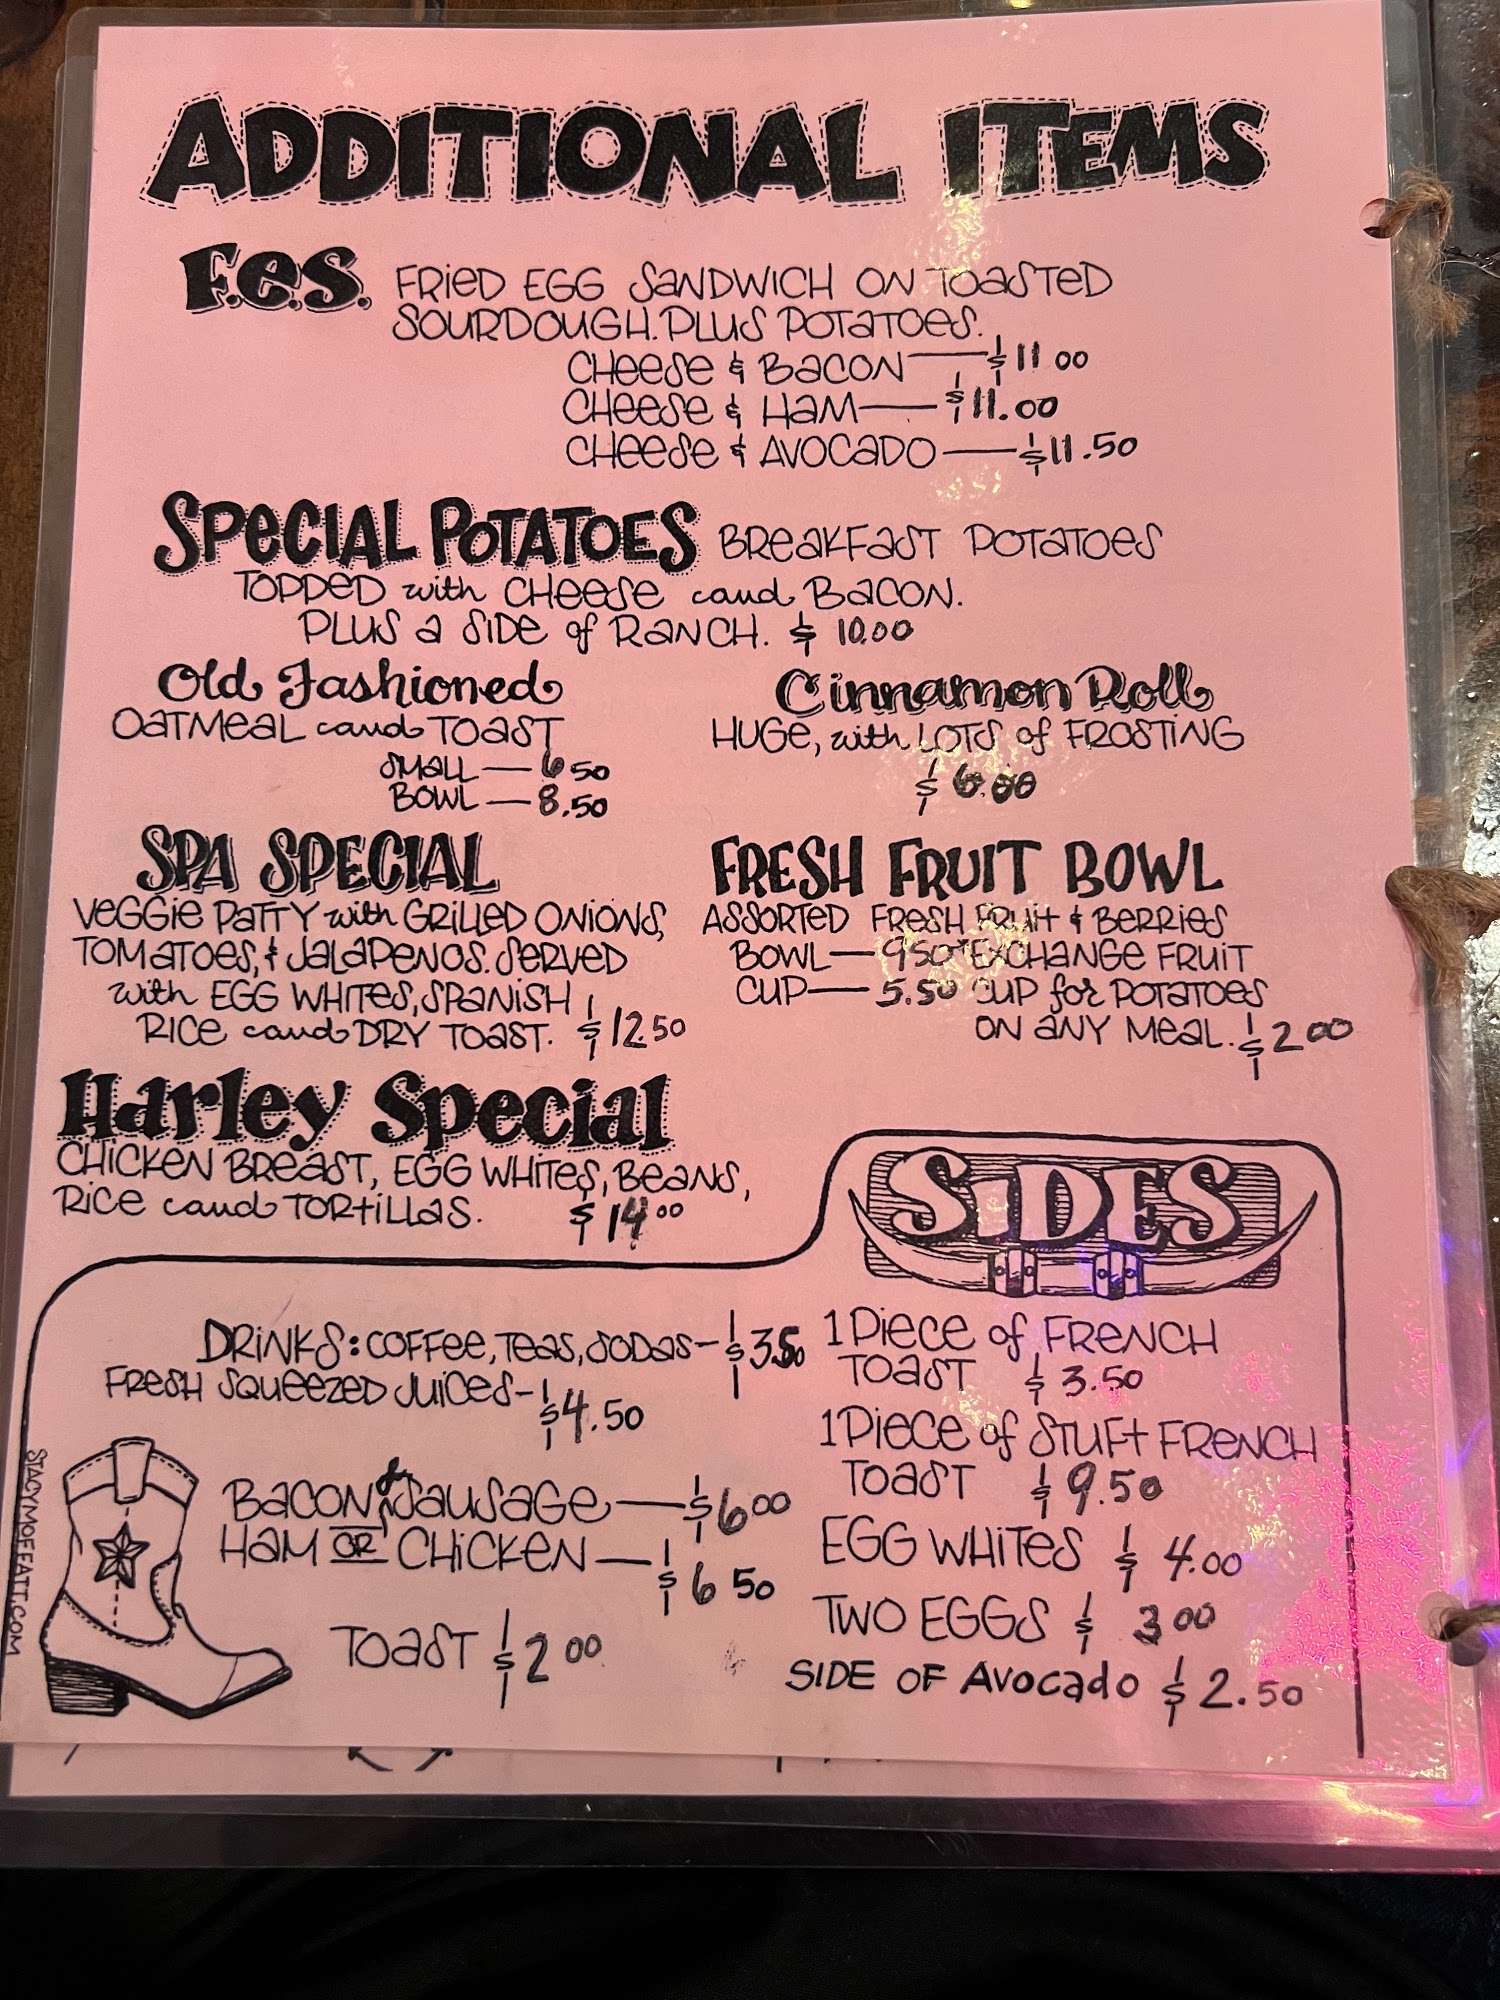 ADDITIONAL ITEMS
F.e.S. FRIED EGG SANDWICH ON TOASTED
SOURDOUGH. PLUS POTATOES.
CHEESE & BACON — $11 00
CHEESE & HAM — $11.00
CHEESE & AVOCADO — $11.50
SPECIAL POTATOES BREAKFAST POTATOES
TOPPED with CHEESE and BACON.
PLUS A SIDE of RANCH. $ 10.00
Old Fashioned
OATMEAL and TOAST
SMALL — 6 50
BOWL — 8.50
Cinnamon Roll
HUGE, with LOTS of FROSTING
$ 6.00
SPA SPECIAL
VEGGIE PATTY with GRILLED ONIONS,
TOMATOES, & JALAPENOS. SERVED
with EGG WHITES, SPANISH
RICE and DRY TOAST. $12.50
FRESH FRUIT BOWL
ASSORTED FRESH FRUIT & BERRIES
BOWL — 9.50 *EXCHANGE FRUIT
CUP — 5.50 CUP for POTATOES
ON ANY MEAL. $2 00
Harley Special
CHICKEN BREAST, EGG WHITES, BEANS,
RICE and TORTILLAS. $14 00
SIDES
DRINKS: COFFEE, TEAS, SODAS — $3.50
FRESH SQUEEZED JUICES — $4.50
BACON or SAUSAGE — $6 00
HAM OR CHICKEN — $6 50
TOAST $2 00
1 PIECE of FRENCH
TOAST $ 3.50
1 PIECE of STUFT FRENCH
TOAST $ 9.50
EGG WHITES $ 4.00
TWO EGGS $ 3 00
SIDE OF AVOCADO $ 2.50
STACYMOFFATT.COM